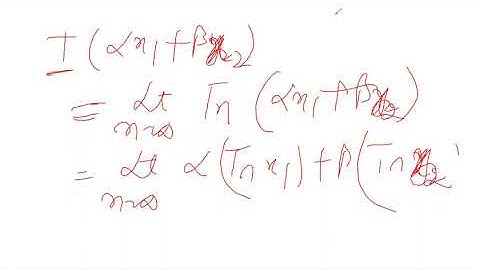 T(αx₁+βx₂)
= Lt n→∞ Tn (αx₁+βx₂)
= Lt n→∞ α(Tn x₁)+β(Tn x₂